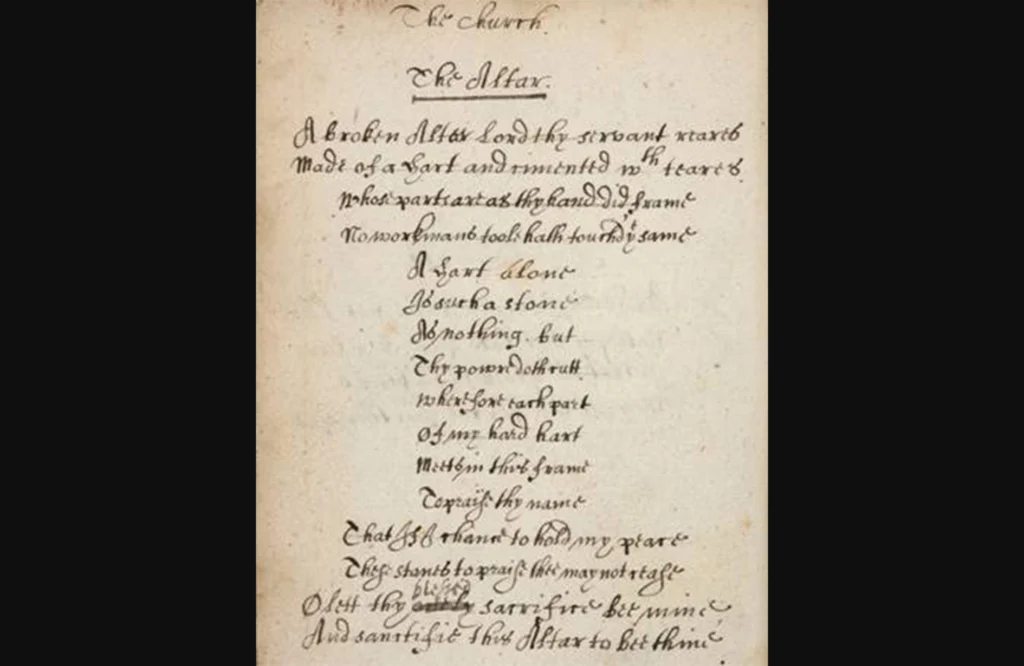 The Church.
The Altar.
A broken Altar Lord thy servant reares
Made of a hart and cimented wth teares.
Whose parts are as thy hand did frame
No workmans toole hath touchd ye same
A hart alone
Is such a stone
As nothing but
Thy powre doth cutt
Wherefore each part
Of my hard hart
Meets in this frame
To praise thy name
That If I chance to hold my peace
These stones to praise thee may not cease
O lett thy blessed sacrifice bee mine,
And sanctifie this Altar to bee thine.